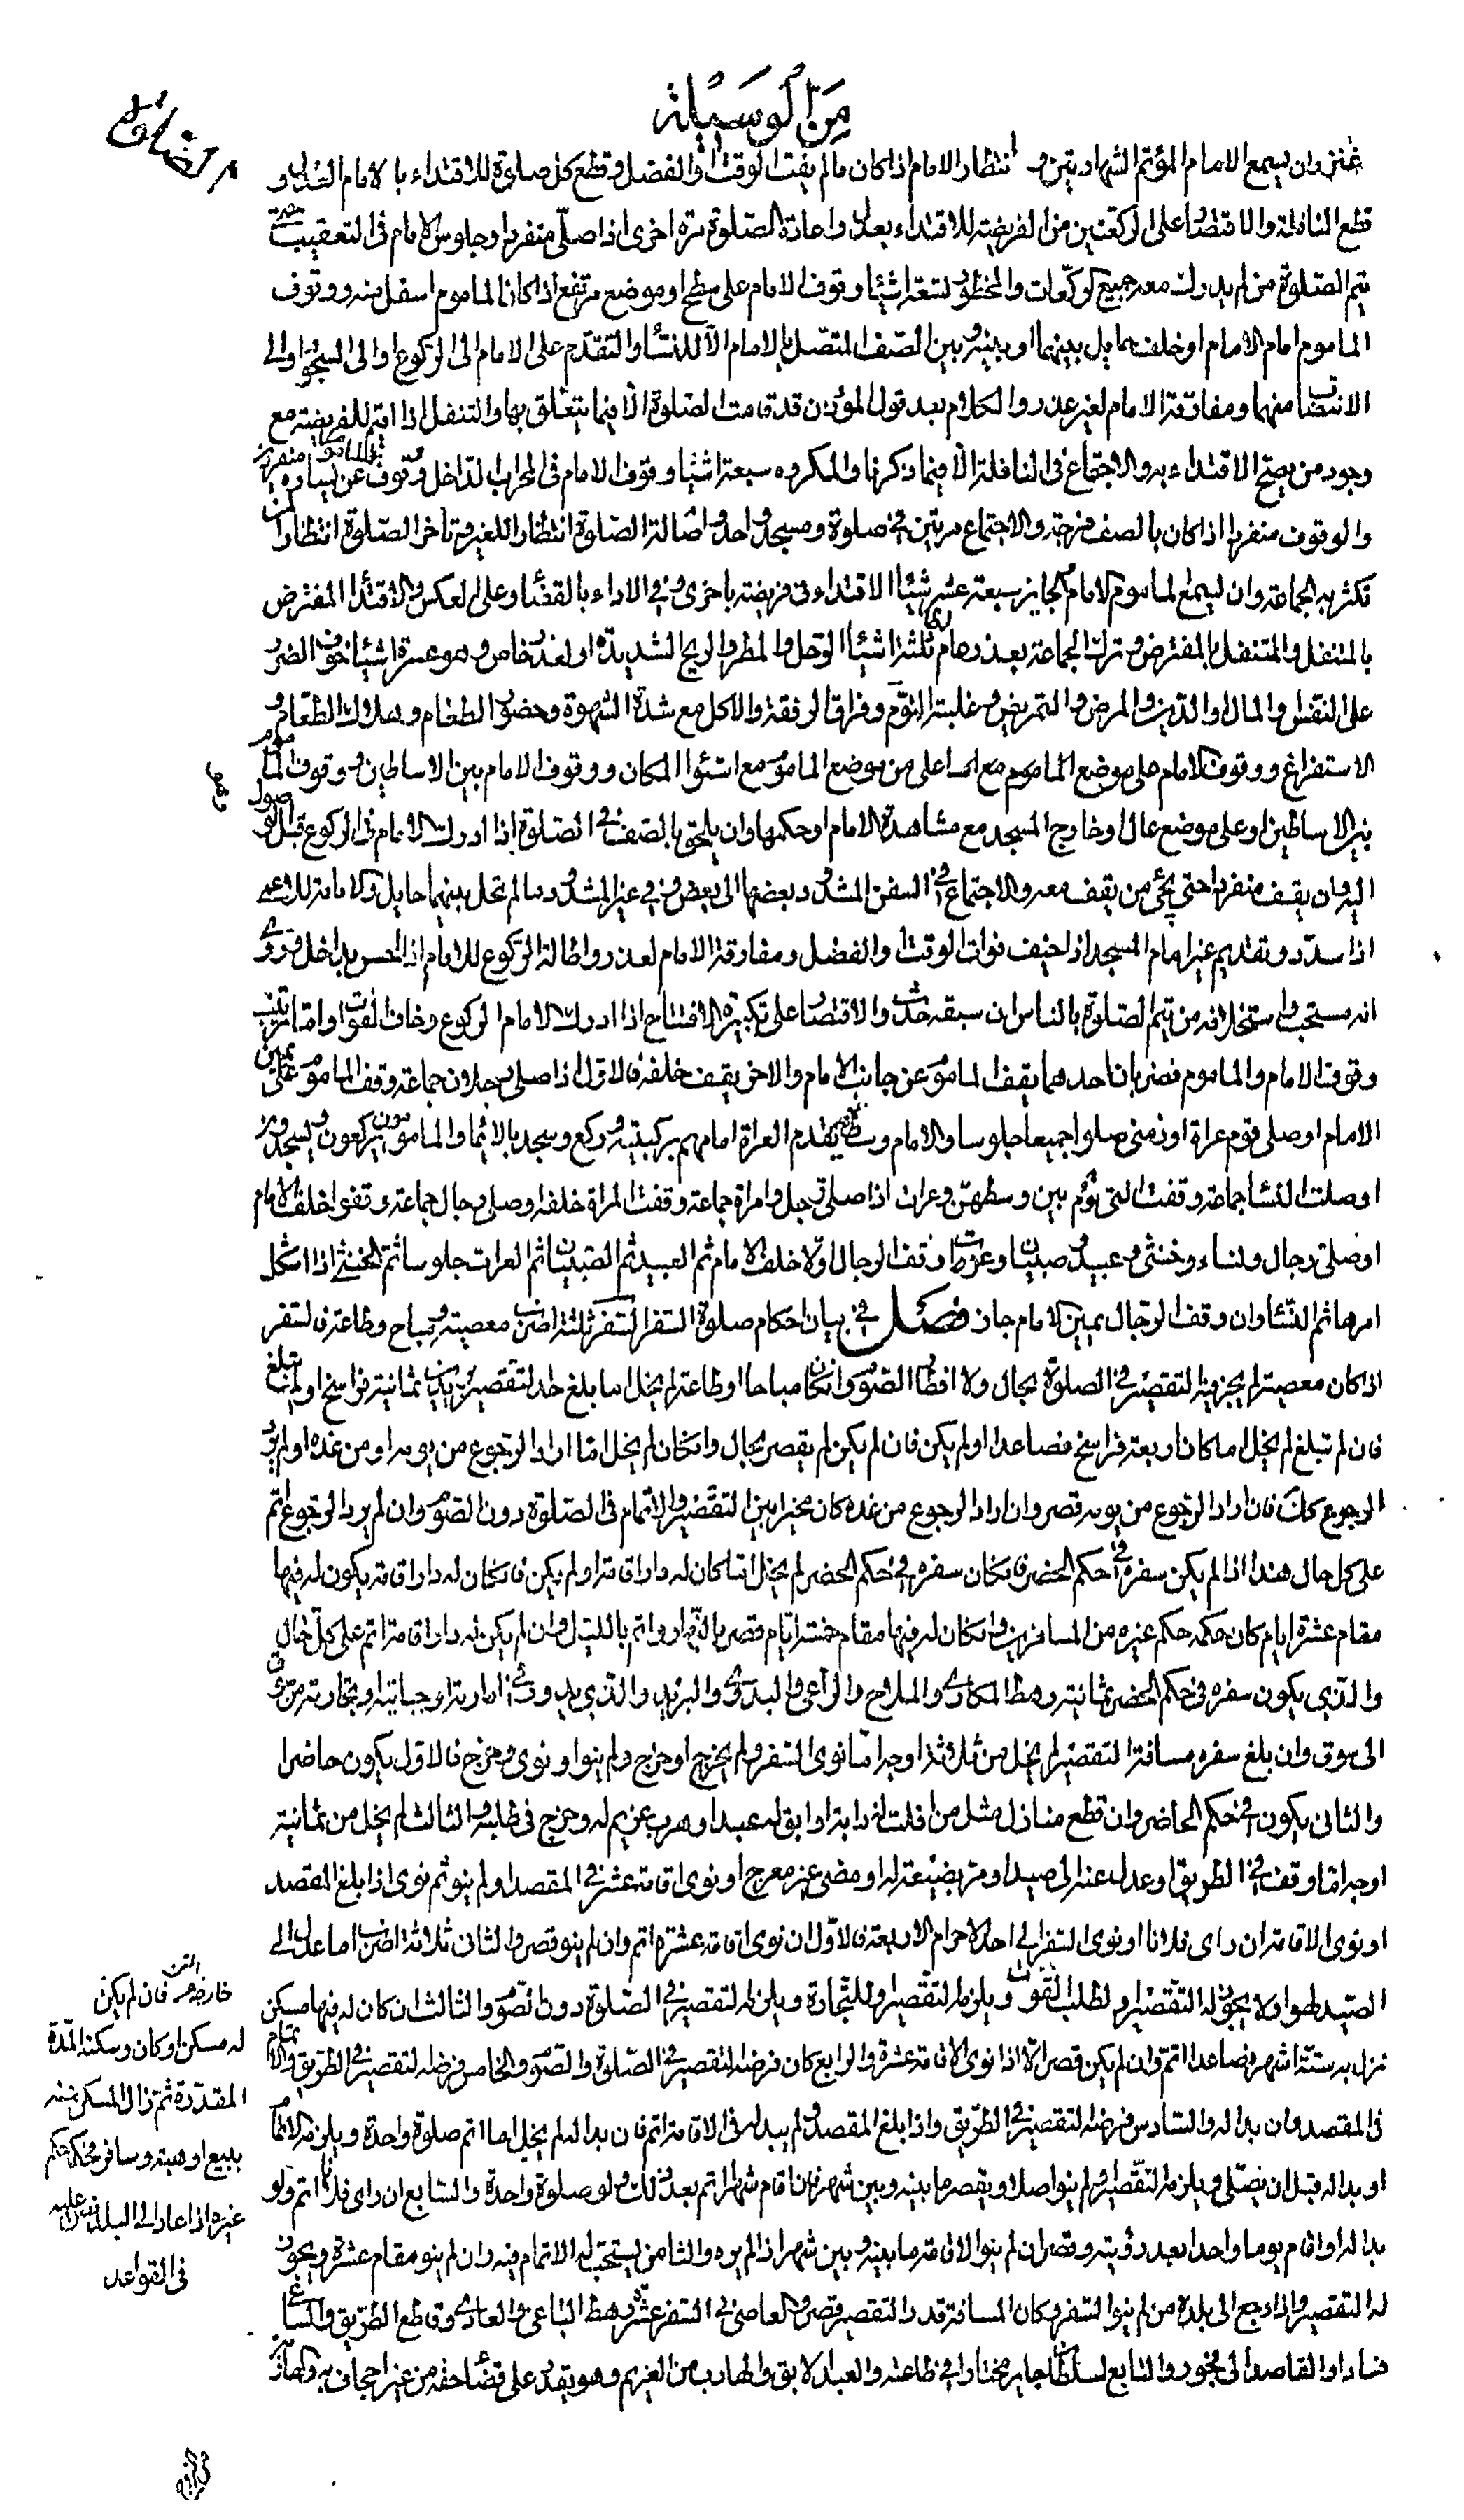 من الوسيلة
الصلوة
وان يسمع الامام المؤتم الشهادتين و انتظار الامام اذا كان ما لم يفت الوقت او الفضل وقطع كل صلوة للاقتداء بالامام العدل و
قطع النافلة والاقتصار على الركعتين من الفريضة للاقتداء بعدل واعادة الصلوة مرة اخرى اذا صلى منفردا وجلوس الامام فى التعقيب حتى
يتم الصلوة من لم يدرك معه جميع الركعات والمحظور تسعة اشياء وقوف الامام على سطح او موضع مرتفع اذا كان الماموم اسفل منه ووقوف
الماموم امام الامام او خلف حايل بينهما او بينه وبين الصف المتصل بالامام الا للنساء والتقدم على الامام الى الركوع او الى السجود والى
الانتصاب منهما ومفارقة الامام لغير عذر والكلام بعد قول المؤذن قد قامت الصلوة الا فيما يتعلق بها والتنفل اذا اقيم للفريضة مع
وجود من يصح الاقتداء به والاجتماع فى النافلة الا فيما ذكرنا والمكروه سبعة اشياء وقوف الامام فى المحراب الداخل ووقوف الماموم عن يساره منفردا
والوقوف منفردا اذا كان بالصف فرجة والاجتماع مرتين فى صلوة ومسجد واحد واطالة الصلوة انتظارا للغير وتأخر الصلوة انتظارا لمن
تكثر به الجماعة وان يسمع الماموم الامام والجايز سبعة عشر شيئا الاقتداء فى فريضة باخرى وفى الاداء بالقضاء وعلى العكس والاقتداء المفترض
بالمتنفل والمتنفل بالمفترض وترك الجماعة بعذر عام وهو ثلثة اشياء الوحل والمطر والريح الشديدة او لعذر خاص وهو عشرة اشياء خوف الضرر
على النفس والمال والدين والمرض والتمريض وغلبة النوم وفراق الرفقة والاكل مع شدة الشهوة وحضور الطعام وهلاك الطعام و
الاستفراغ ووقوف الامام على موضع الماموم مع اعلى من موضع الماموم مع استواء المكان ووقوف الامام بين الاساطين ووقوف الماموم
بين الاساطين او على موضع عال او خارج المسجد مع مشاهدة الامام او حكمها وان يلحق بالصف فى الصلوة اذا ادرك الامام فى الركوع قبل الوصول
اليه وان يقف منفردا حتى يجئ من يقف معه والاجتماع فى السفن المشدود بعضها الى بعض وفى غير المشدود ما لم تحل بينهما حايل والامامة للاعمى
اذا سدد وتقديم غير امام المسجد اذا خيف فوات الوقت او الفضل ومفارقة الامام لعذر واطالة الركوع للامام اذا احس بداخل وروى
انه مستحب واستخلافه من يتم الصلوة بالناس ان سبقه حدث والاقتصار على تكبيرة الافتتاح اذا ادرك الامام الركوع وخاف الفوات واما ترتيب
وقوف الامام والماموم فضربان احدهما يقف الماموم عن جانب الامام والاخر يقف خلفه فالاول اذا صلى رجلان جماعة وقف الماموم على يمين
الامام او صلى قوم عراة او زمنى صلوا جميعا جلوسا والامام وسطهم يتقدم العراة امامهم بركبتيه ويركع ويسجد بالايماء والمامومون يركعون ويسجدون
او صلت النساء جماعة وقفت التى تؤم بهن وسطهن وعرات اذا صلى رجل وامراة جماعة وقفت المراة خلفه وصلى رجال جماعة وقفوا خلف الامام
او صلى رجال ونساء وخنثى وعبيد وصبيان وعراة وقف الرجال اولا خلف الامام ثم العبيد ثم الصبيان ثم العرات جلوسا ثم الخنثى اذا اشكل
امرها ثم النساء وان وقف الرجال يمين الامام جاز فصل فى بيان احكام صلوة السفر السفر ثلثة اضرب معصية ومباح وطاعة فالسفر
اذا كان معصية لم يجز فيه التقصير فى الصلوة بحال ولا افطار الصوم وان كان مباحا او طاعة لم يخل اما بلغ حد التقصير بريدين ثمانية فراسخ او لم يبلغ
فان لم تبلغ لم يخل اما كان اربعة فراسخ فصاعدا او لم يكن فان لم يكن لم يقصر بحال وان كان لم يخل اما اراد الرجوع من يومه او من غده او لم يرد
الرجوع كك فان اراد الرجوع من يومه قصر وان اراد الرجوع من غده كان مخيرا بين التقصير والاتمام فى الصلوة دون الصوم وان لم يرد الرجوع اتم
على كل حال هذا اذا لم يكن سفره فى حكم الحضر فان كان سفره فى حكم الحضر لم يخل اما كان له دار اقامة او لم يكن فان كان له دار اقامة يكون له فيها
مقام عشرة ايام كان حكمه حكم غيره من المسافرين وان كان له فيها مقام خمسة ايام قصر بالنهار واتم بالليل وان لم يكن له دار اقامة اتم على كل حال
والذى يكون سفره فى حكم الحضر ثمانية رهط المكارى والملاح والراعى والبدوى والبريد والذى يدور فى امارته او جبايته او تجارته من سوق
الى سوق وان بلغ سفره مسافة التقصير لم يخل من ثلاثة اوجه اما نوى السفر ولم يخرج او خرج ولم ينو او نوى وخرج فالاول يكون حاضرا
والثانى يكون فى حكم الحاضر وان قطع منازل مثل من افلت له دابة او ابق له عبد او هرب غريم له وخرج فى طلبه والثالث لم يخل من ثمانية
اوجه اما وقف فى الطريق او عدل عنه الى صيد او مر بضيعة له او مضى غير معرج او نوى اقامة عشر فى المقصد او لم ينو ثم نوى اذا بلغ المقصد
او نوى الاقامة ان راى فلانا او نوى السفر الى احد الاحرام الاربعة فالاول ان نوى اقامة عشرة اتم وان لم ينو قصر والثانى ثلاثة اضرب اما عدل الى
الصيد لهوا ولا يجوز له التقصير او لطلب القوت ويلزمه التقصير او للتجارة ويلزمه التقصير فى الصلوة دون الصوم والثالث ان كان له فيها مسكن
نزل به ستة اشهر فصاعدا اتم وان لم يكن قصر الا اذا نوى الاقامة عشرة والرابع كان فرضه التقصير فى الصلوة والصوم والخامس فرضه التقصير فى الطريق والاتمام
فى المقصد وان بدا له والسادس فرضه التقصير فى الطريق واذا بلغ المقصد ولم يبد له فى الاقامة اتم فان بدا له لم يخل اما اتم صلوة واحدة ويلزمه الاتمام
او بدا له قبل ان يصلى ويلزمه التقصير ولم ينو اصلا ويقصر ما بينه وبين شهر فان اقام شهرا اتم بعد ذلك ولو صلوة واحدة والسابع ان راى فلانا اتم ولو
بدا له او اقام يوما واحدا بعد رؤيته وقصر ان لم ينو الاقامة ما بينه وبين شهر اذا لم يره والثامن يستحب له الاتمام فيه وان لم ينو مقام عشرة ويجوز
له التقصير واذا رجع الى بلده من لم ينو السفر وكان المسافة قدر التقصير قصر والعاصى فى السفر عشرة رهط الباغى والعادى وقاطع الطريق والساعى
فسادا والقاصد الى فجور والتابع لسلطان جاير مختارا فى طاعته والعبد الابق والهارب من الغريم وهو يقدر على قضاء حقه من غير اجحاف به
فان لم يكن
له مسكن او كان وسكنه المدة
المقدرة ثم زال المسكن عنه
ببيع او هبة وسافر فحكمه حكم
غيره اذا عاد الى البلد نص عليه
فى القواعد